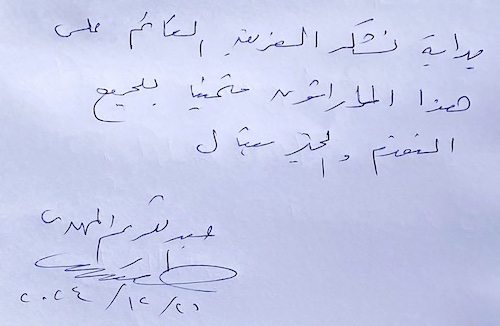 بداية نشكر الفريق القائم على
هذا الماراثون متمنيا للجميع
التقدم و
عبد الكريم المهدي
٢٠٢٤/١٢/٢١